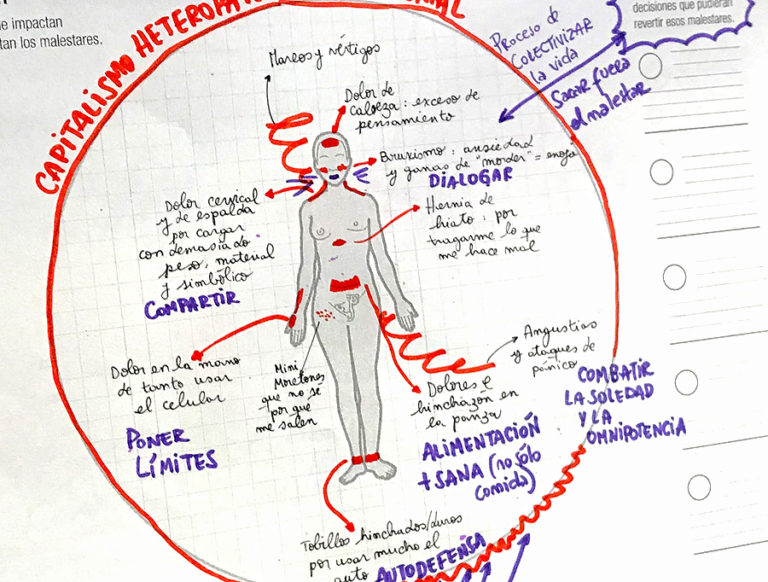 e impactan
tan los malestares.
CAPITALISMO
decisiones que pudieran
revertir esos malestares.
Proceso de
COLECTIVIZAR
la vida
Sacar fuera
el malestar
Mareos y vértigos
Dolor de
cabeza: exceso de
pensamiento
Bruxismo: ansiedad
y ganas de "morder" = enojo
DIALOGAR
Hernia de
hiato: por
tragarme lo que
me hace mal
Dolor cervical
y de espalda
por cargar
con demasiado
peso, material
y simbólico
COMPARTIR
Dolor en la mano
de tanto usar
el celular
PONER
LÍMITES
Mini
Moretones
que no sé
por qué
me salen
Angustias
y ataques de
pánico
COMBATIR
LA SOLEDAD
Y LA
OMNIPOTENCIA
Dolores e
hinchazón en
la panza
ALIMENTACIÓN
+ SANA (no sólo
comida)
Tobillos hinchados/duros
por usar mucho el
auto
AUTODEFENSA